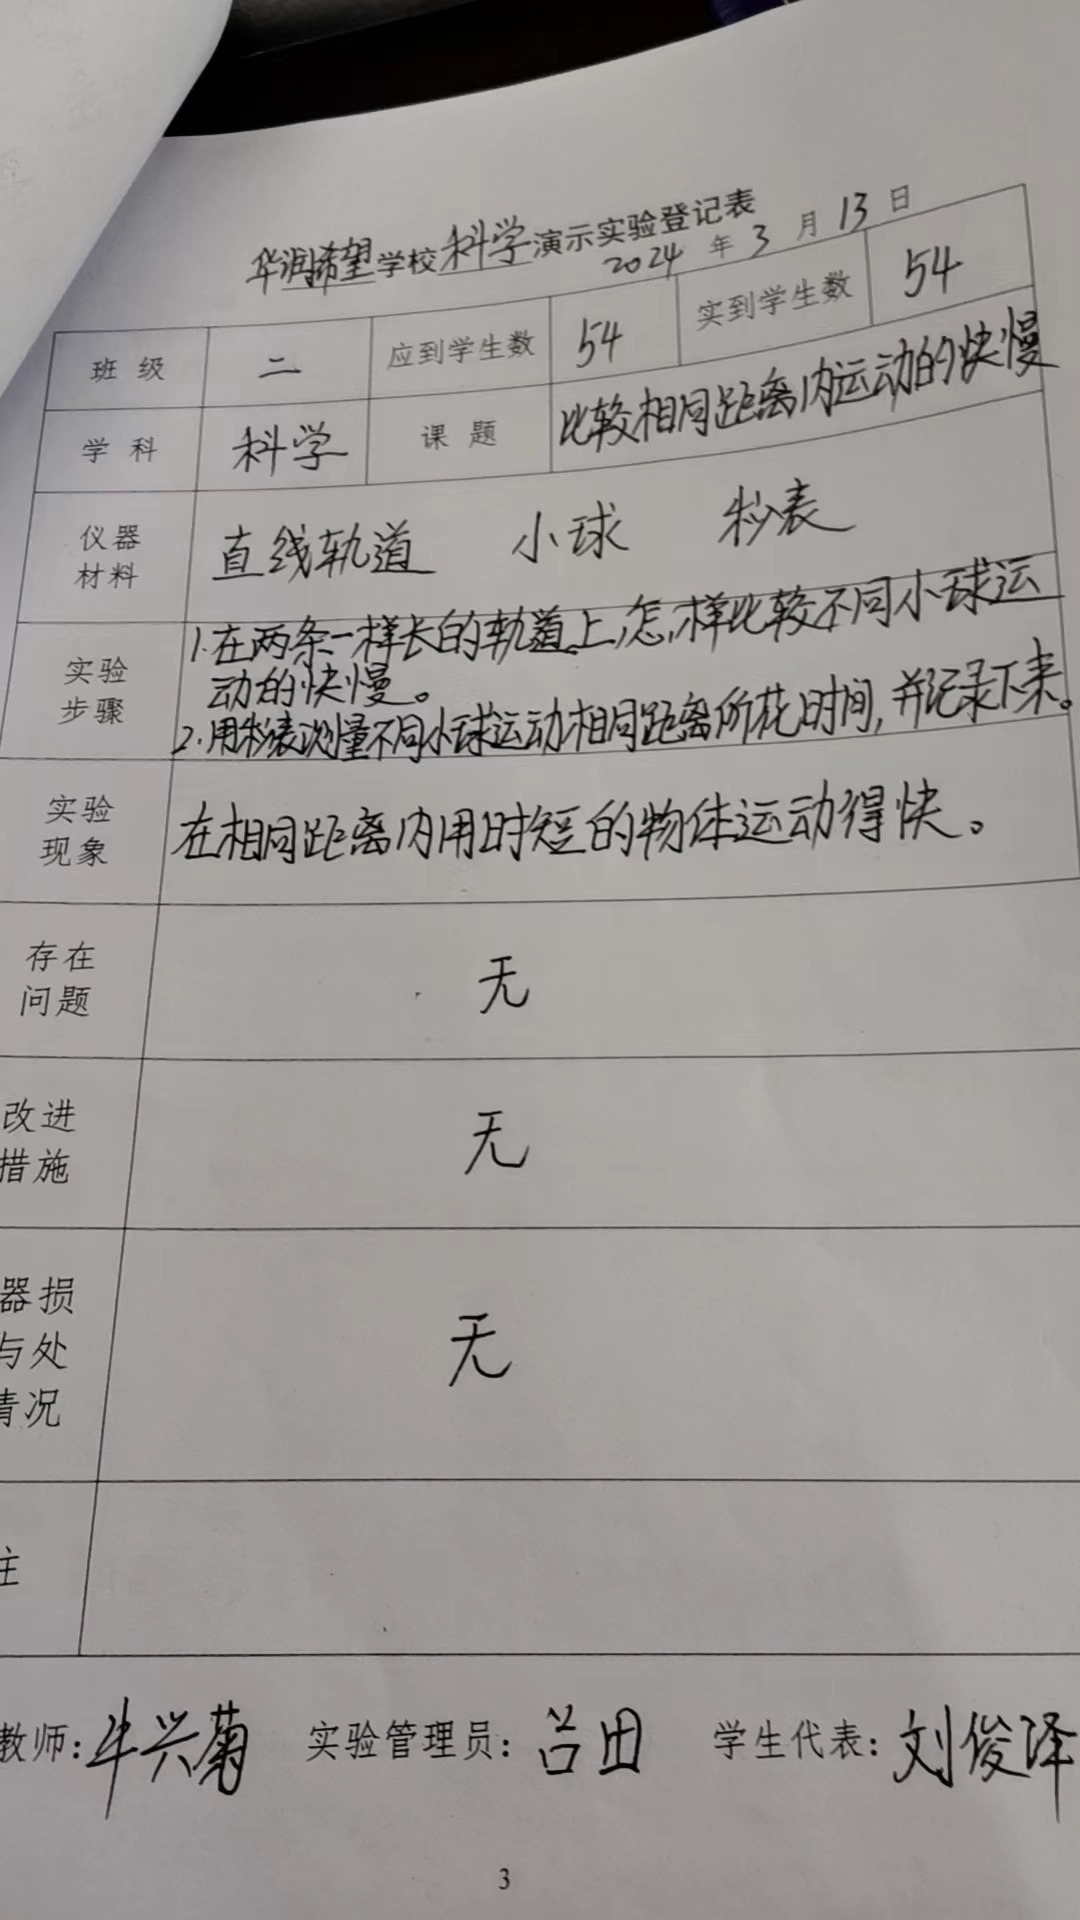 华润希望学校科学演示实验登记表
2024年3月13日
班级 二 应到学生数 54 实到学生数 54
学科 科学 课题 比较相同距离内运动的快慢
仪器
材料
直线轨道 小球 秒表
实验
步骤
1.在两条一样长的轨道上,怎样比较不同小球运
动的快慢。
2.用秒表测量不同小球运动相同距离所花时间,并记录下来。
实验
现象
在相同距离内用时短的物体运动得快。
存在
问题
无
改进
措施
无
器损
与处
情况
无
注
教师:牛兴菊 实验管理员:吕田 学生代表:刘俊泽
3